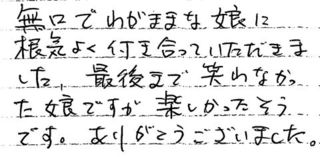 無口でわがままな娘に
根気よく付き合っていただきま
した、最後まで笑わなかっ
た娘ですが楽しかったそう
です。ありがとうございました。